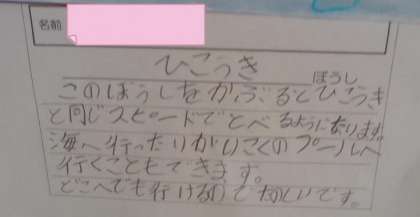 名前
ひこうき
ぼうし
このぼうしをかぶるとひこうき
と同じスピードでとべるようになります。
海へ行ったりがいこくのプールへ
行くこともできます。
どこへでも行けるので たのしいです。